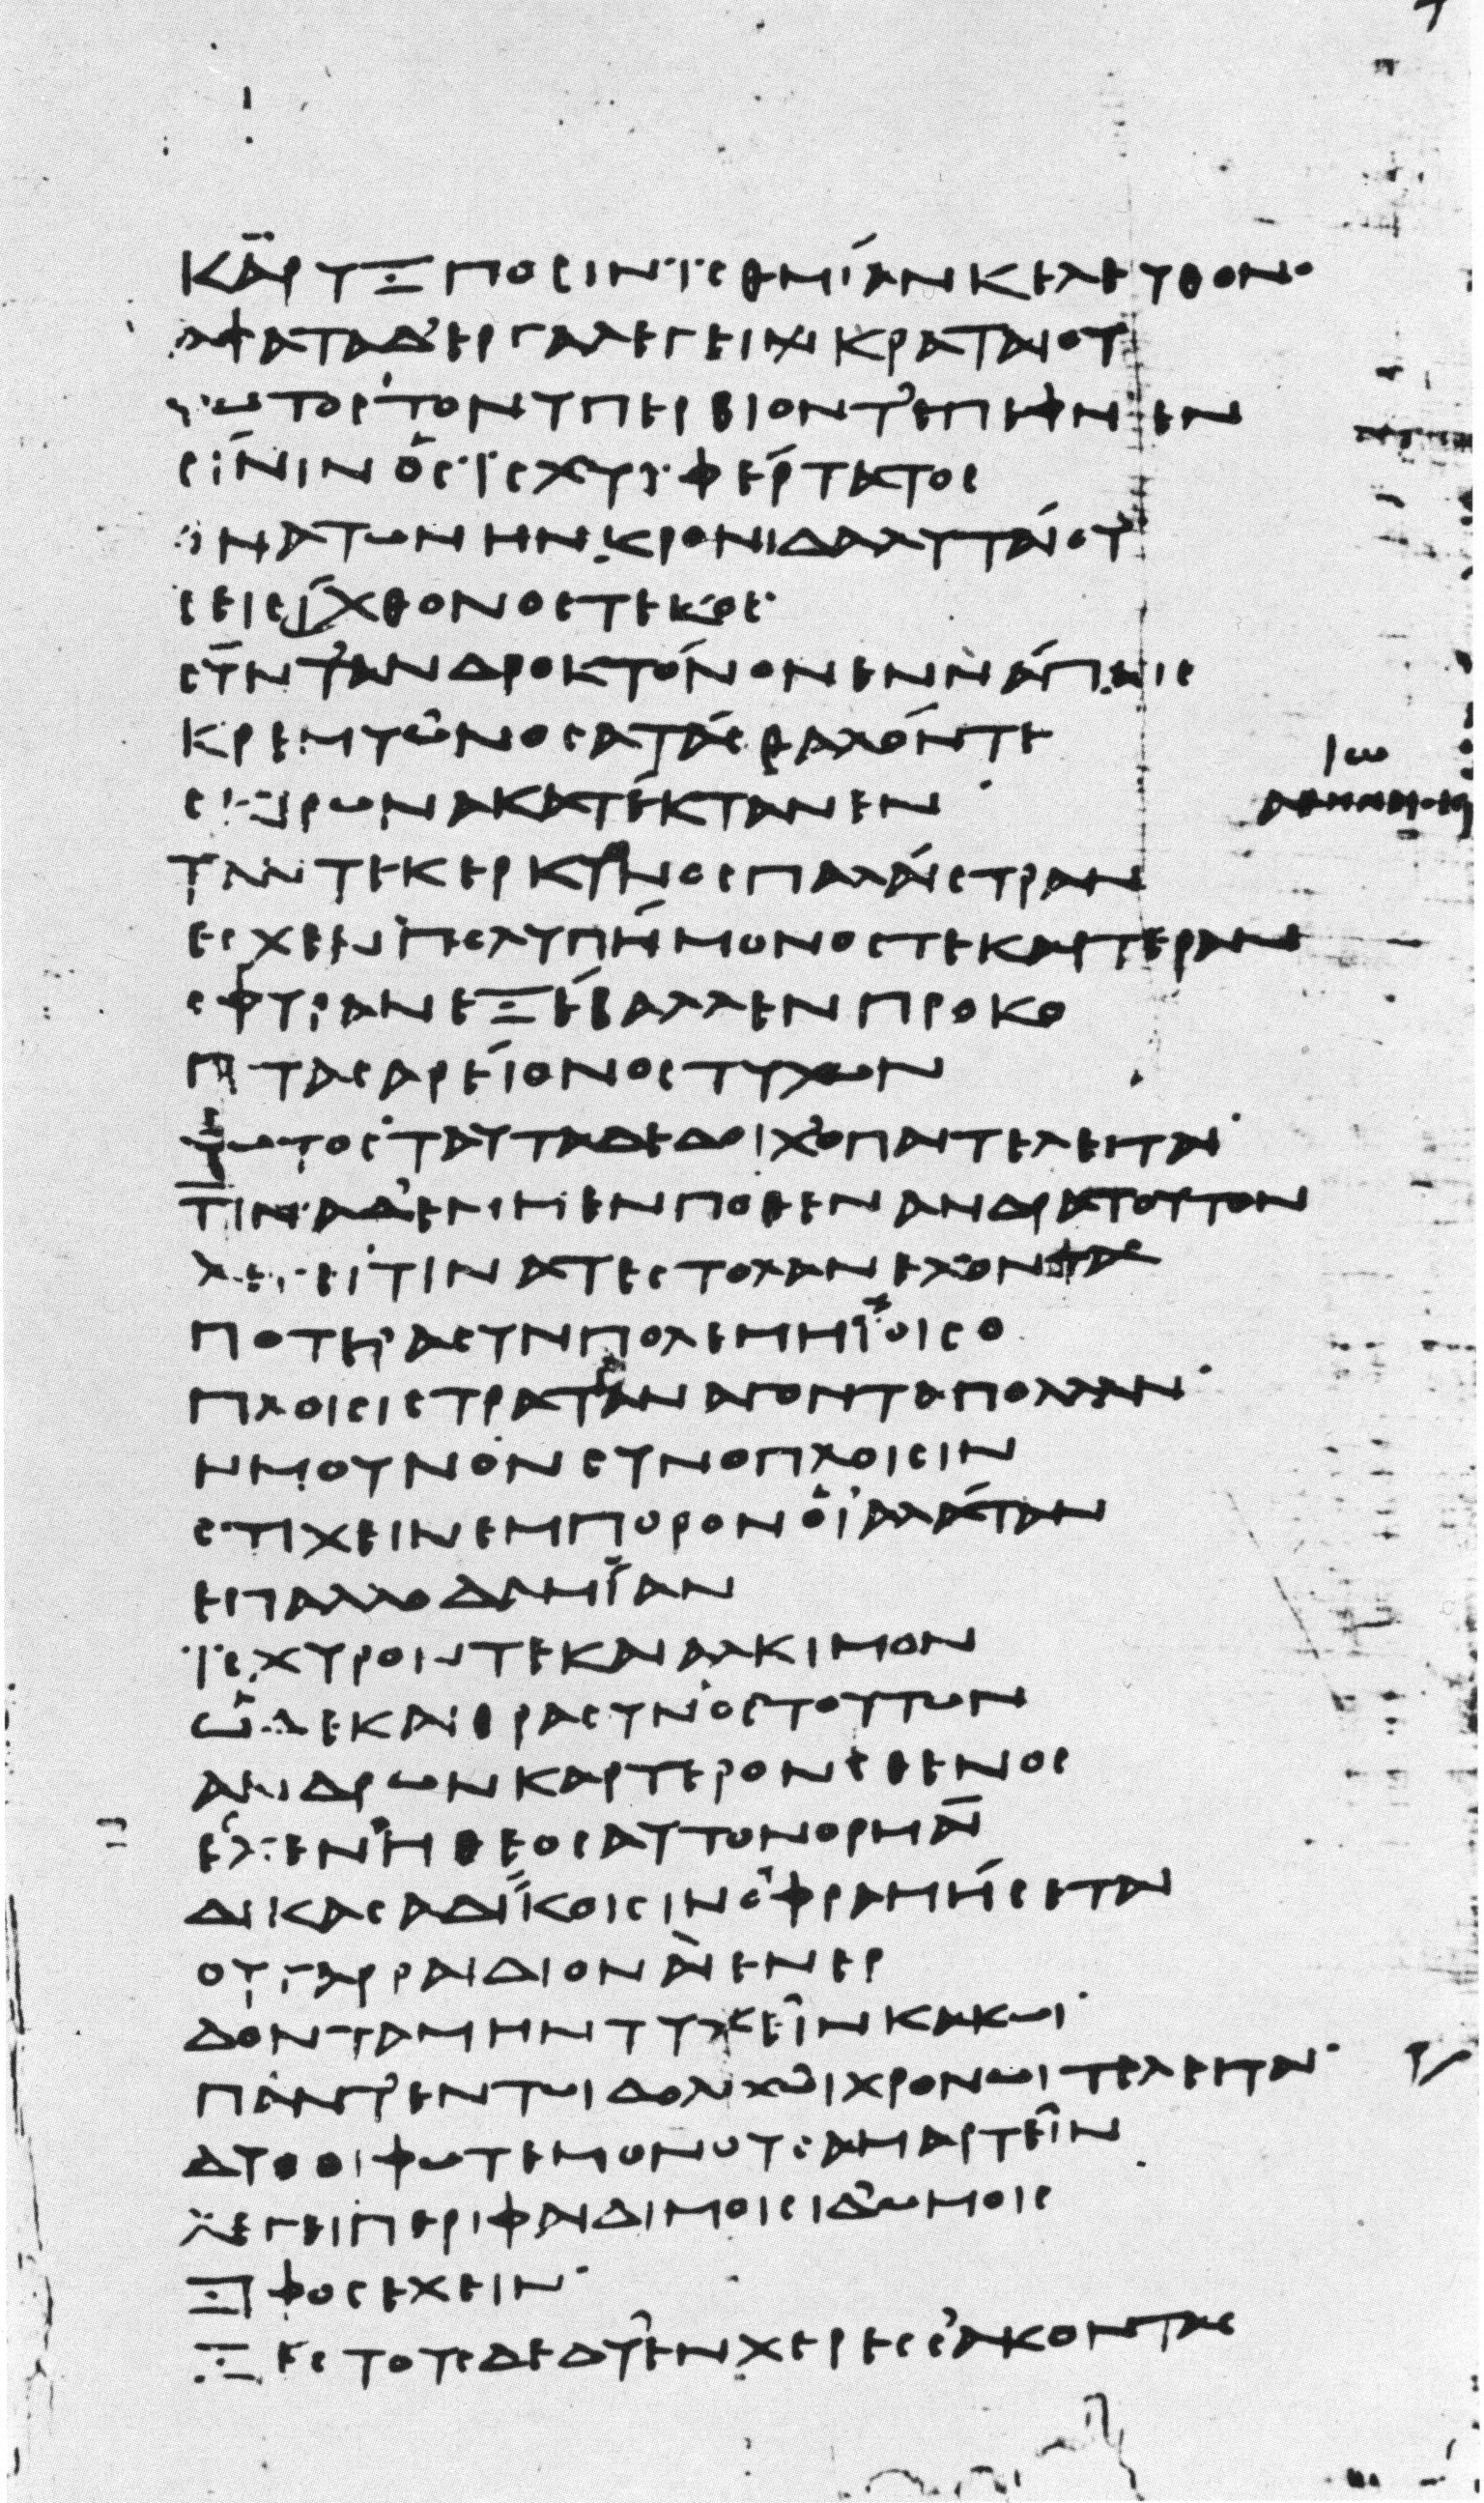 ΚᾹΡΥΞΠΟϹΙΝΪϹΘΜΊΑΝΚΕΛΕΥΘΟΝ·
ΑΦΑΤΑΔ’ΕΡΓΑΛΕΓΕΙΚΡΑΤΑΙΟΥ
ΦΩΤΟϹ·ΤΟΝΥΠΕΡΒΙΟΝΤ’ΕΠΕΦΝΕΝ
ϹΊΝΙΝὉϹΪϹΧΥΪΦΈΡΤΑΤΟϹ
ΘΝΑΤΩΝΗΝΚΡΟΝΙΔΑΛΥΤΑΊΟΥ
ϹΕΙϹΊΧΘΟΝΟϹΤΕΚΟϹ·
ϹΥ͂ΝΤ’ΑΝΔΡΟΚΤΌΝΟΝΕΝΝΆΠΑΙϹ
ΚΡΕΜΥΩΝΟϹΑΤΆϹΘΑΛΌΝΤΕ
ϹΚΙΡΩΝΑΚΑΤΈΚΤΑΝΕΝ·
ΤΑΝΤΕΚΕΡΚΥΟΝΟϹΠΑΛΑΊϹΤΡΑΝ
ΕϹΧΕΝΠΟΛΥΠΉΜΟΝΟϹΤΕΚΑΡΤΕΡΑΝ
ϹΦΥΡΑΝΕΞΈΒΑΛΛΕΝΠΡΟΚΟ
ΠΤΑϹΑΡΕΊΟΝΟϹΤΥΧΩΝ
ΦΩΤΟϹ·ΤΑΥΤΑΔΕΔΟΙΧ’ΟΠΑΙΤΕΛΕΙΤΑΙ·
ΤΙΝΑΔ’ΕΜΜΕΝΠΟΘΕΝΑΝΔΡΑΤΟΥΤΟΝ
ΛΕΓΕΙ·ΤΙΝΑΤΕϹΤΟΛΑΝΕΧΟΝΤΑ
ΠΟΤΕΡΑϹΥΝΠΟΛΕΜΗΪΟΙϹΟ
ΠΛΟΙϹΙϹΤΡΑΤΙΑΝΑΓΟΝΤΑΠΟΛΛΑΝ·
ΗΜΟΥΝΟΝϹΥΝΟΠΛΟΙϹΙΝ
ϹΤΙΧΕΙΝΕΜΠΟΡΟΝΟἹ’ΑΛΆΤΑΝ
ΕΠΑΛΛΟΔΑΜΊΑΝ
ΪϹΧΥΡΟΝΤΕΚΑΙΑΛΚΙΜΟΝ
ΩΔΕΚΑΙΘΡΑϹΥΝὉϹΤΟΥΤΩΝ
ΑΝΔΡΩΝΚΑΡΤΕΡΟΝϹΘΕΝΟϹ
ΕϹΧΕΝΗΘΕΟϹΑΥΤΟΝΟΡΜΑΙ
ΔΙΚΑϹΑΔΊΚΟΙϹΙΝΟΦΡΑΜΉϹΕΤΑΙ
ΟΥΓΑΡΡΑΙΔΙΟΝΑῚΕΝΕΡ
ΔΟΝΤΑΜΗΝΤΥΧΕΙΝΚΑΚΩΙ·
ΠΑΝΤ’ΕΝΤΩΙΔΟΛΙΧΩΙΧΡΟΝΩΙΤΕΛΕΙΤΑΙ·
ΔΥΟΟΙΦΩΤΕΜΟΝΟΥϹΑΜΑΡΤΕΙΝ
ΛΕΓΕΙΠΕΡΙΦΑΙΔΙΜΟΙϹΙΔ’ΩΜΟΙϹ
ΞΙΦΟϹΕΧΕΙΝ·
ΞΕϹΤΟΥϹΔΕΔΥ’ΕΝΧΕΡΕϹϹ’ΑΚΟΝΤΑϹ